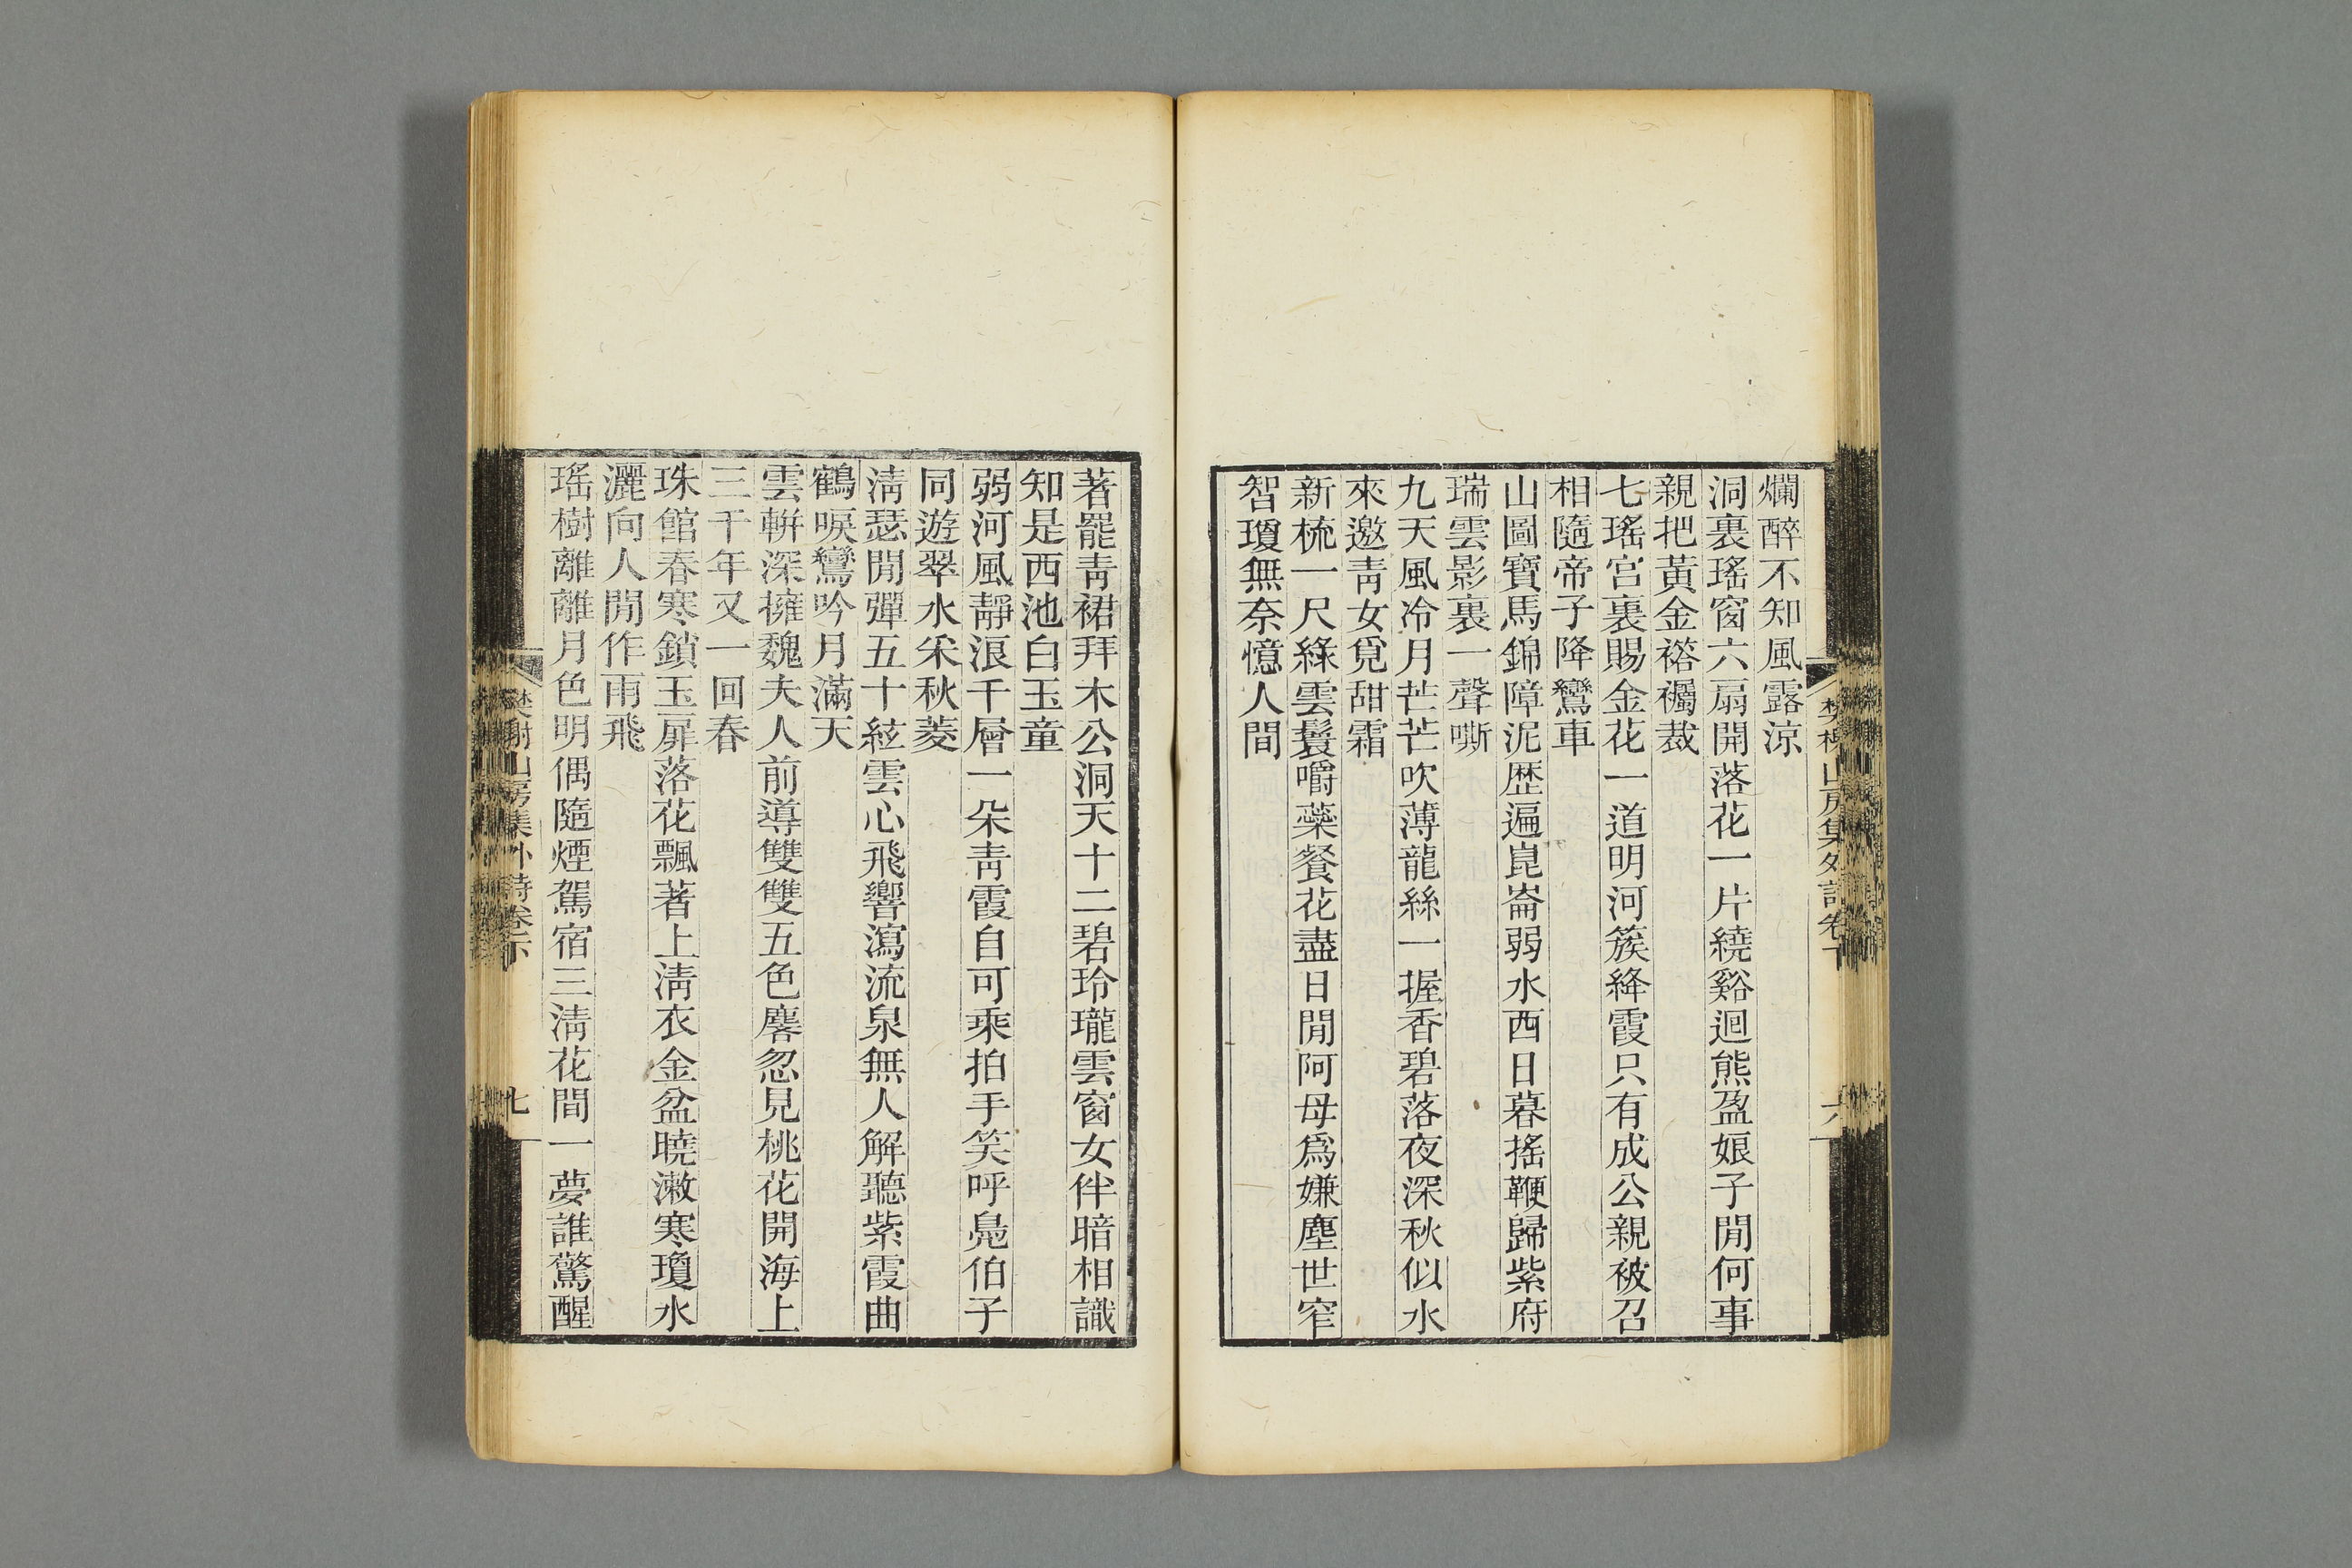 爛醉不知風露涼
洞裏瑤窗六扇開落花一片繞谿迴熊盈娘子閒何事
親把黃金襘襡裁
七瑤宮裏賜金花一道明河簇絳霞只有成公親被召
相隨帝子降鸞車
山圖寶馬錦障泥歷遍崑崙弱水西日暮搖鞭歸紫府
瑞雲影裏一聲嘶
九天風冷月芒芒吹薄龍絲一握香碧落夜深秋似水
來邀靑女覓甜霜
新梳一尺綠雲鬟嚼蘂餐花盡日閒阿母爲嫌塵世窄
智瓊無奈憶人間
樊榭山房集外詩卷下
六
著罷靑裙拜木公洞天十二碧玲瓏雲窗女伴暗相識
知是西池白玉童
弱河風靜浪千層一朵靑霞自可乘拍手笑呼鳧伯子
同遊翠水采秋菱
淸瑟閒彈五十絃雲心飛響瀉流泉無人解聽紫霞曲
鶴唳鸞吟月滿天
雲輧深擁魏夫人前導雙雙五色麐忽見桃花開海上
三千年又一回春
珠館春寒鎖玉扉落花飄著上淸衣金盆曉潄寒瓊水
灑向人閒作雨飛
瑤樹離離月色明偶隨煙駕宿三淸花間一夢誰驚醒
樊榭山房集外詩卷下
七